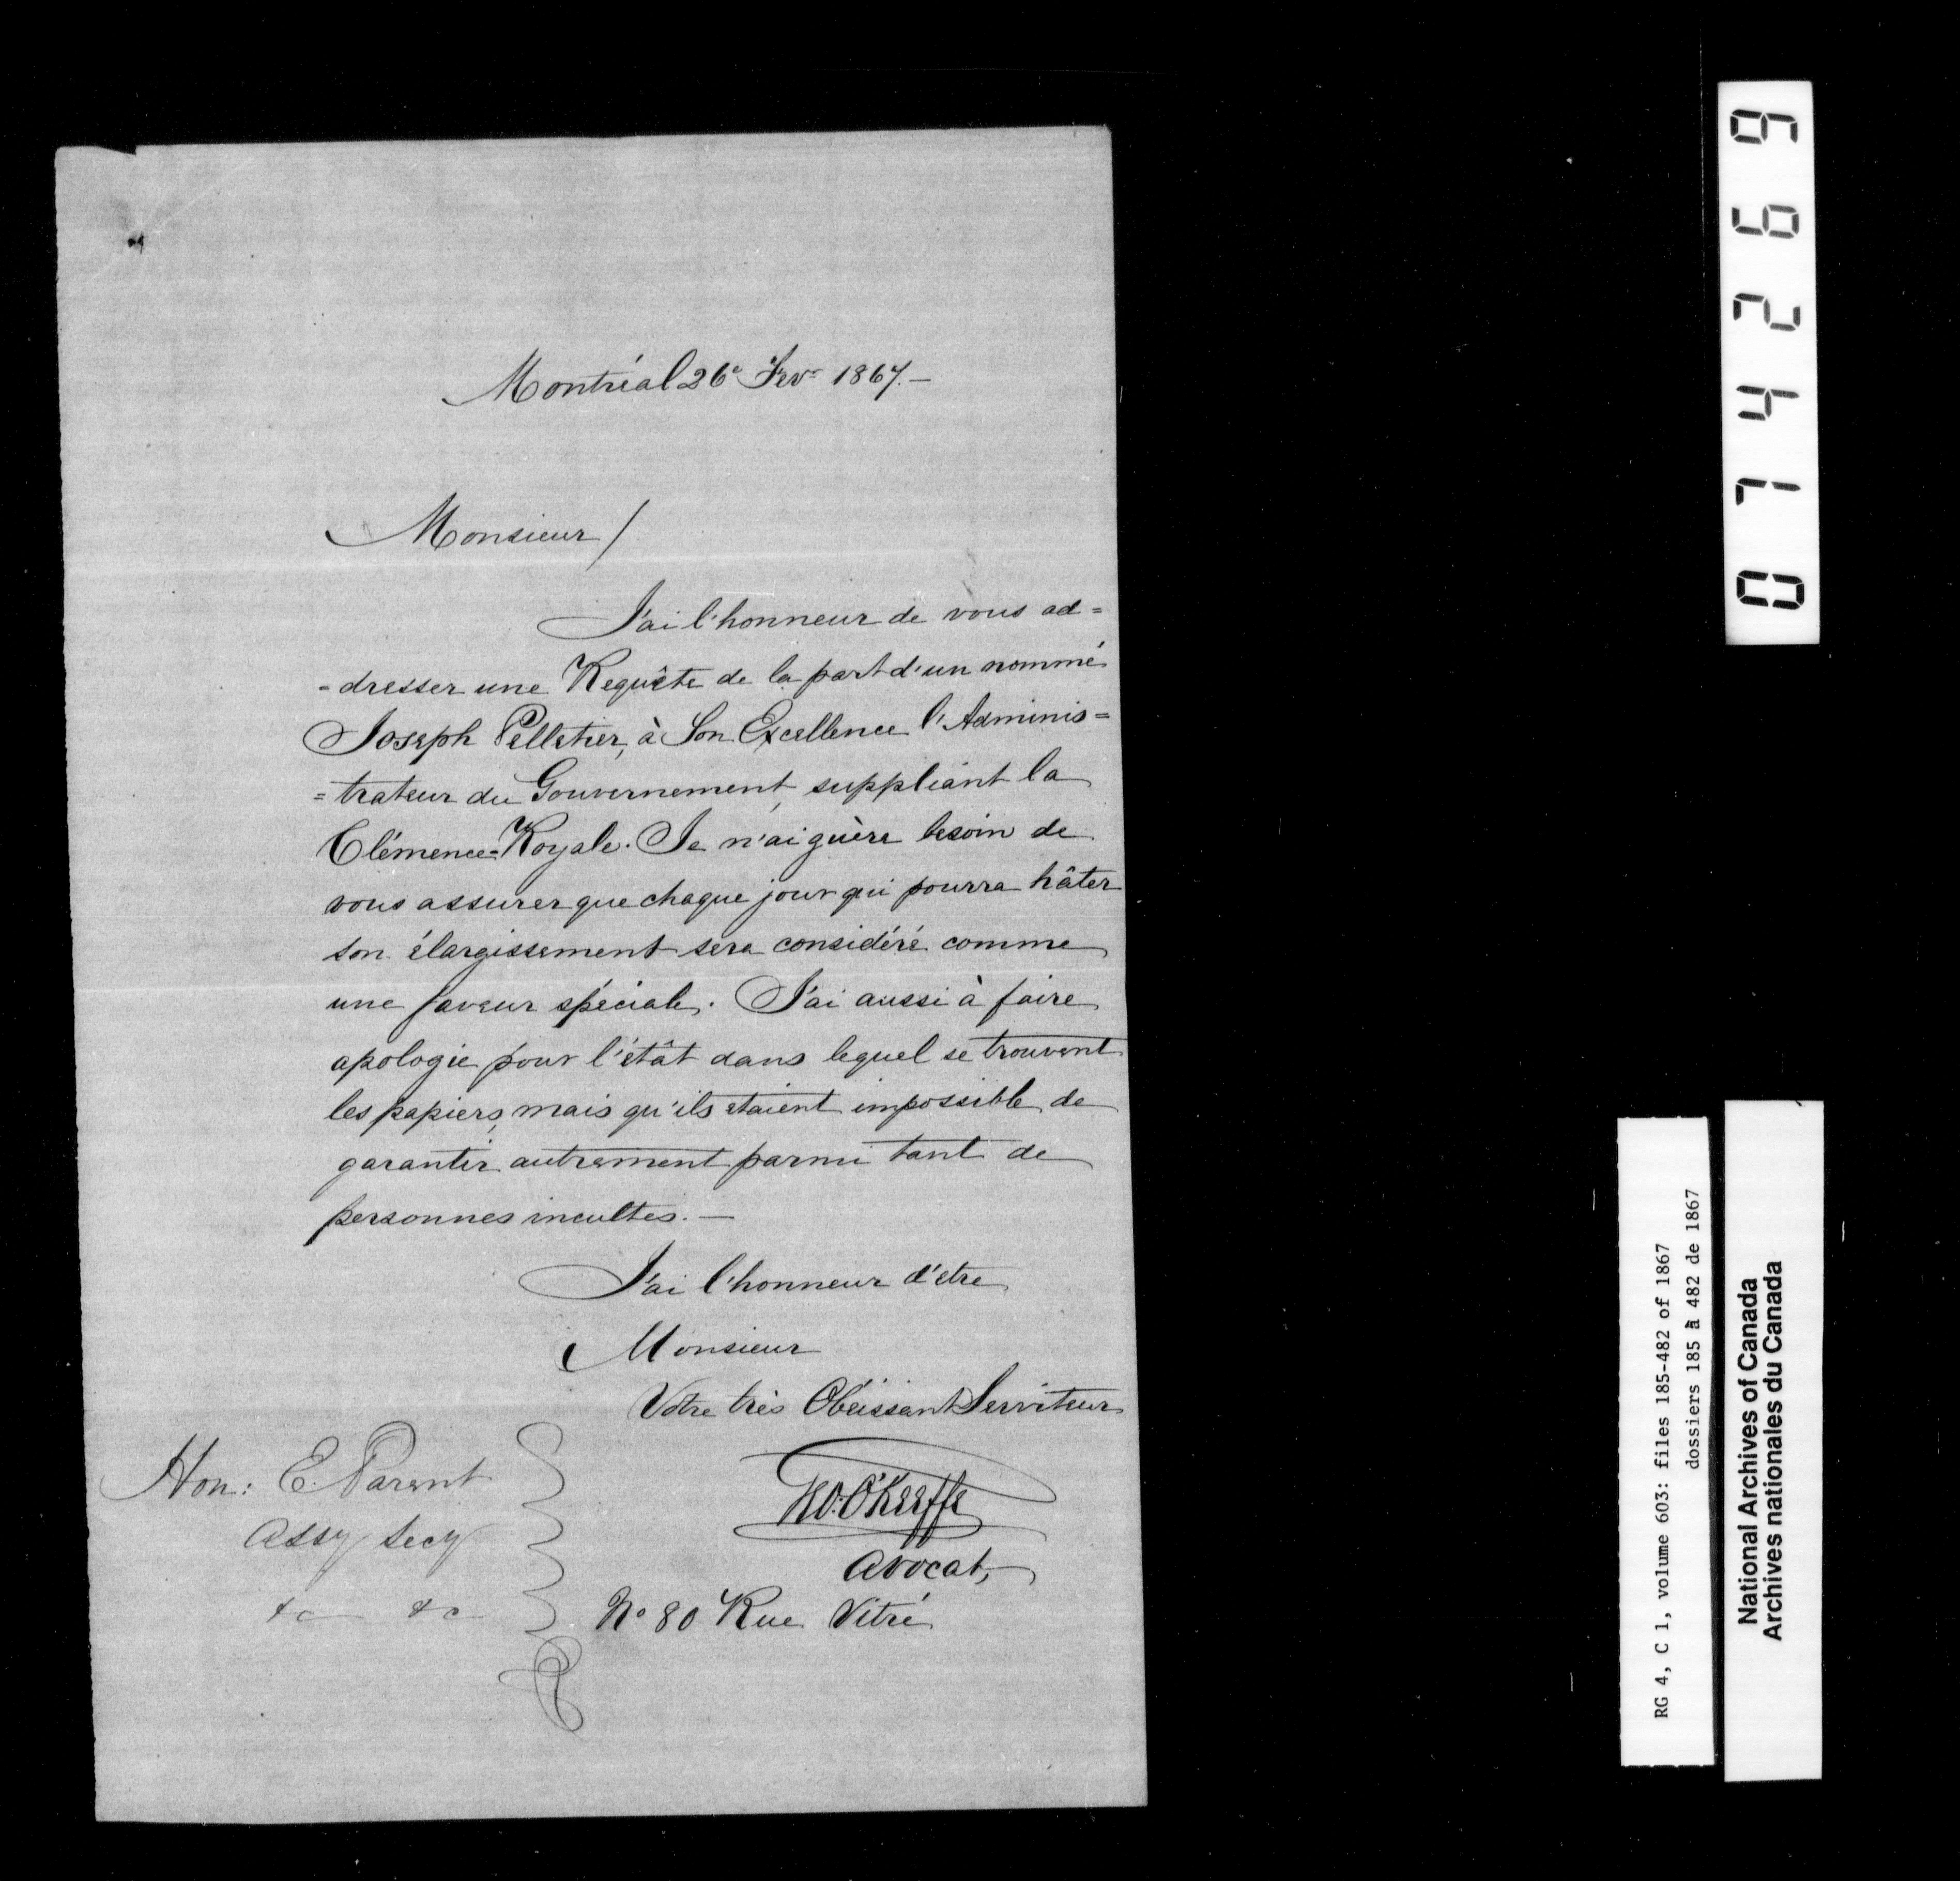 Montréal 26e Fevr 1867.—
Monsieur /
J'ai l'honneur de vous ad=
=dresser une Requête de la part d'un nommé
Joseph Pelletier, à Son Excellence l'Adminis=
=trateur du Gouvernement, suppliant la
Clémence=Royale. Je n'ai guère besoin de
vous assurer que chaque jour qui pourra hâter
son élargissement sera considéré comme
une faveur spéciale. J'ai aussi à faire
apologie pour l'étât dans lequel se trouvent
les papiers, mais qu'ils etaient impossible de
garantir autrement parmi tant de
personnes incultes.—
J'ai l'honneur d'etre
Monsieur
Votre très Obéissant Serviteur
O'Keeffe
Avocat,
No 80 Rue Vitré
Hon: E. Parent
Assy Secy
&c &c
074269
RG 4, C 1, volume 603: files 185-482 of 1867
dossiers 185 à 482 de 1867
National Archives of Canada
Archives nationales du Canada